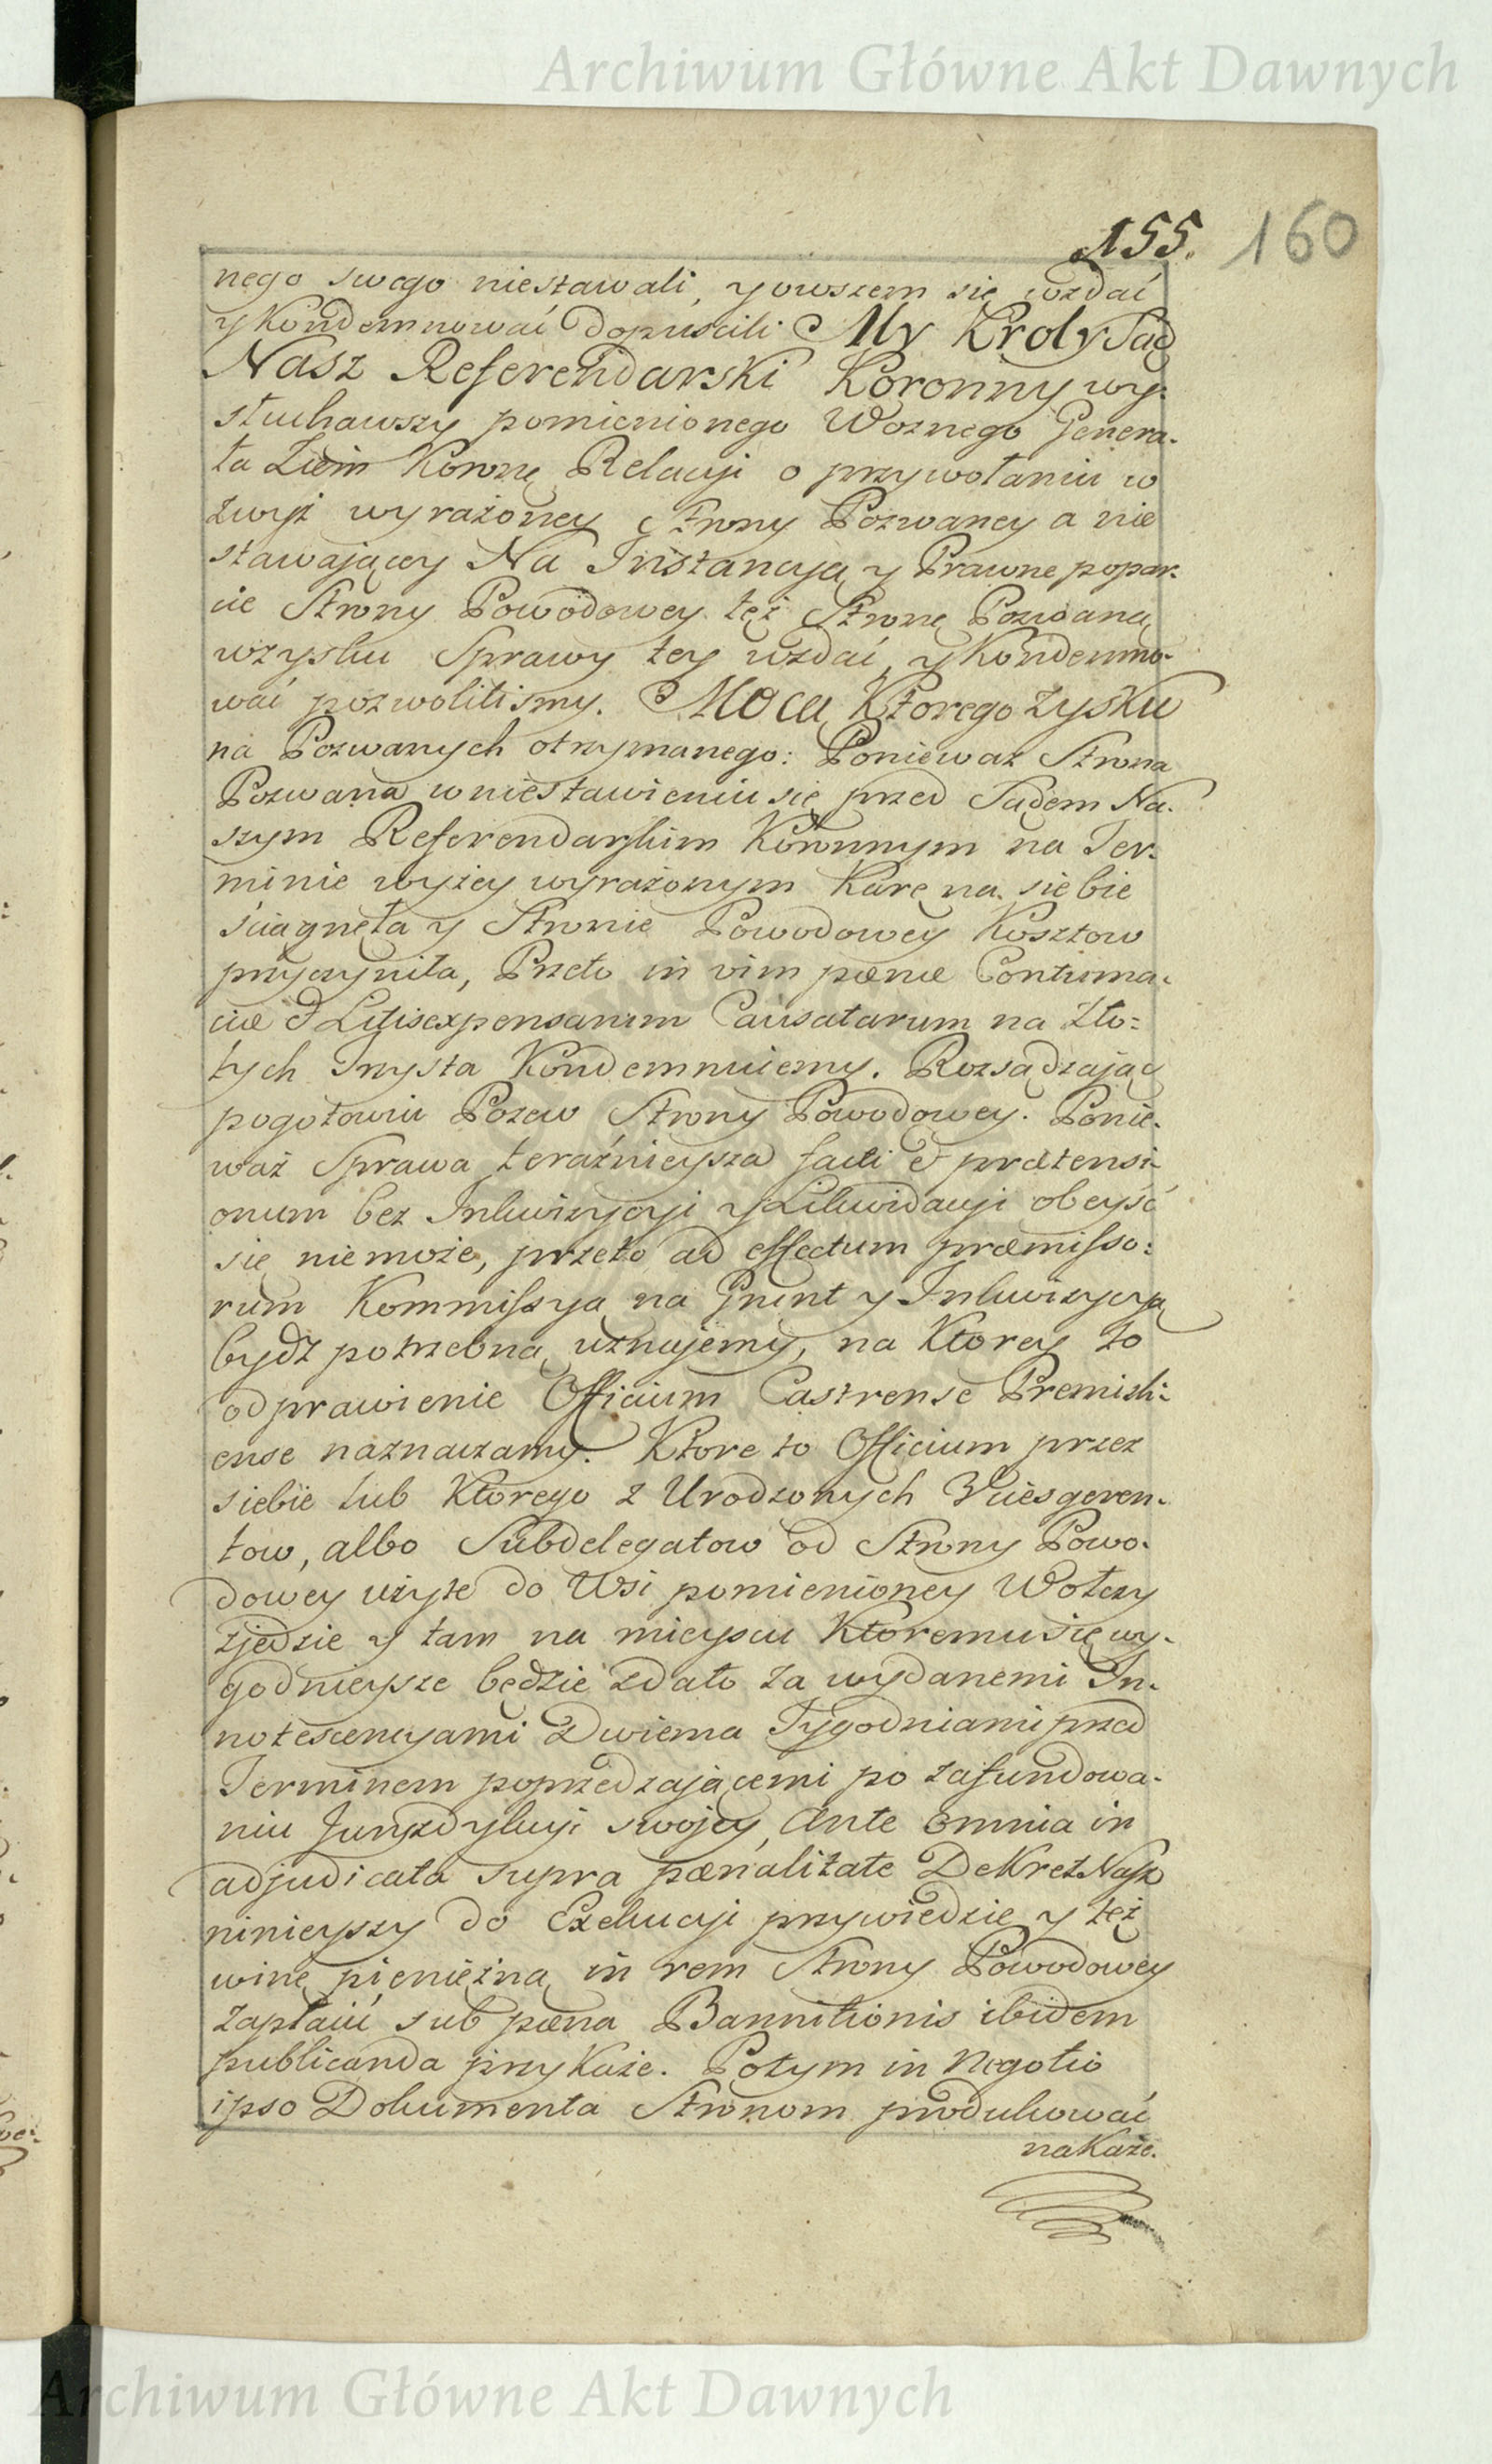 Archiwum Główne Akt Dawnych
155. 160
nego swego niestawali, y owszem się wzdać
y Kondemnować dopuscili My Krol y Sąd
Nasz Referendarski Koronny wy-
słuchawszy pomienionego Woznego Genera-
ła Ziem Koronnę Relacyi o przywołaniu w
zwyż wyrażoney Strony Pozwaney a nie
stawaiącey Na Instancyą y Prawne popar-
cie Strony Powodowey też Stronę Pozwaną
wzysku Sprawy tey wzdać, y Kondemno-
wać pozwolilismy. Mocą Ktorego Zysku
na Pozwanych otrzymanego: Ponieważ Strona
Pozwana w niestawieniu się przed Sądem Na-
szym Referendarskim Koronnym na Ter-
minie wyżey wyrażonym Karę na siebie
ściągnęła y Stronie Powodowey Kosztow
przyczyniła, Przeto in vim pœnæ Contuma-
ciæ & Litisexpensarum Causatarum na Zło=
tych Trzysta Kondemnuiemy. Rozsądzaiąc
pogotowiu Pozew Strony Powodowey. Ponie-
waż Sprawa teraźnieysza facti & prætensi-
onum bez Inkwizycyi y Likwidacyi obeyść
się niemoże, przeto ad effectum præmisso=
rum Kommissyą na Grunt y Inkwizycyą
bydź potrzebną uznajemy, na Ktorey to
odprawienie Officium Castrense Premisli-
ense naznaczamy. Ktore to Officium przez
siebie lub Ktorego z Urodzonych Vicesgeren-
tow, albo Subdelegatow od Strony Powo-
dowey użyte do Wsi pomienioney Wołczy
zjedzie y tam na mieyscu Ktoremu się wy-
godnieysze będzie zdało za wydanemi In-
notescencyami Dwiema Tygodniami przed
Terminem poprzedzaiącemi po zafundowa-
niu Juryzdykcyi swojey, Ante omnia in
adjudicata supra pœnalitate Dekret Nasz
ninieyszy do Exekucyi przywiedzie y też
winę pieniężną in rem Strony Powodowey
Zapłaić sub pœna Bannitionis ibidem
publicanda przykaże. Potym in Negotio
ipso Dokumenta Stronom produkować
nakaże.
Archiwum Główne Akt Dawnych